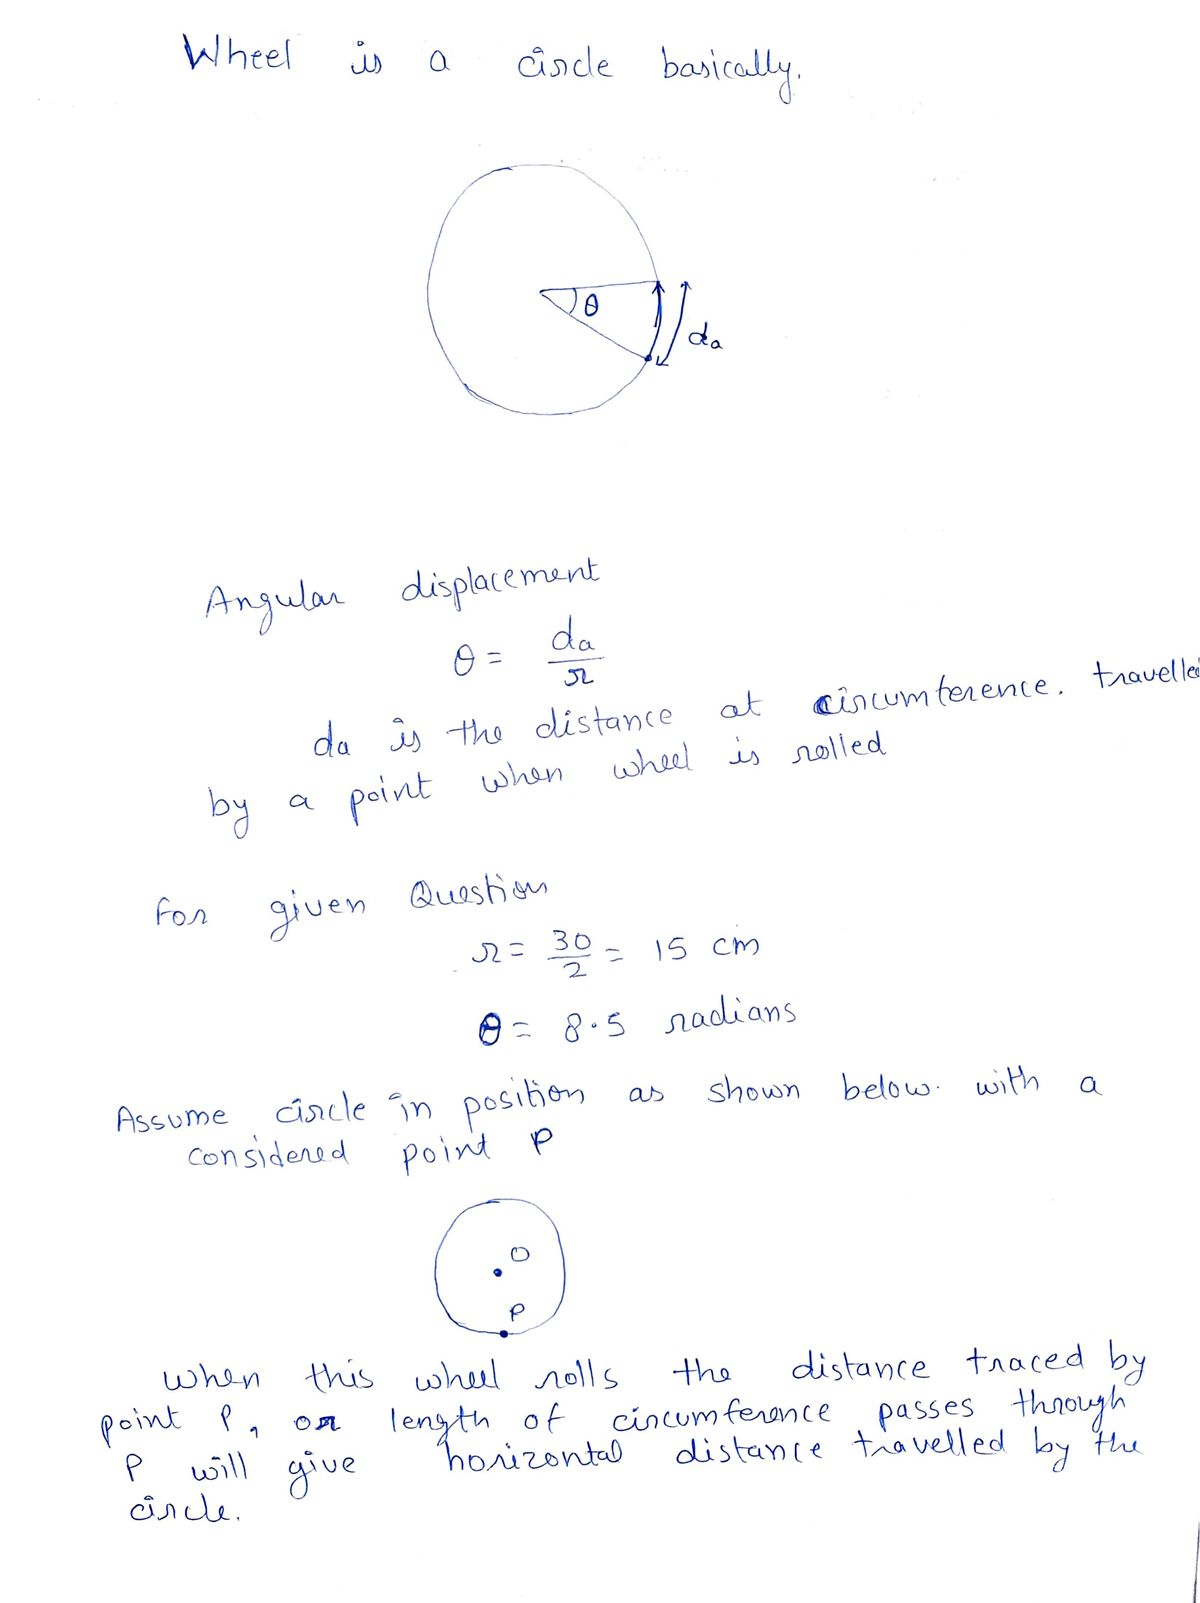 Wheel is a circle basically.
θ
da
Angular displacement
θ = da/r
da is the distance at circumference. travelled
by a point when wheel is rolled
For given Question
r = 30/2 = 15 cm
θ = 8.5 radians
Assume circle in position as shown below. with a
considered point P
O
P
When this wheel rolls the distance traced by
point P, or length of circumference passes through
P will give horizontal distance travelled by the
circle.